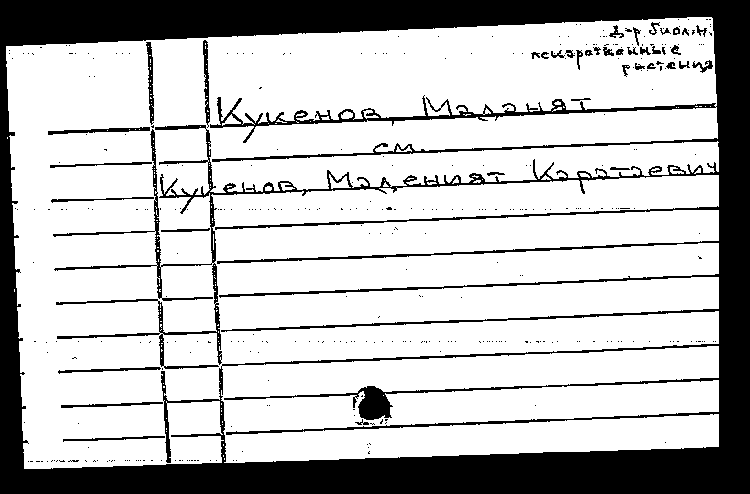 д-р биол.н.
лекарственные
растения
Кукенов, Маданят
см.
Кукенов, Маденият Каратаевич